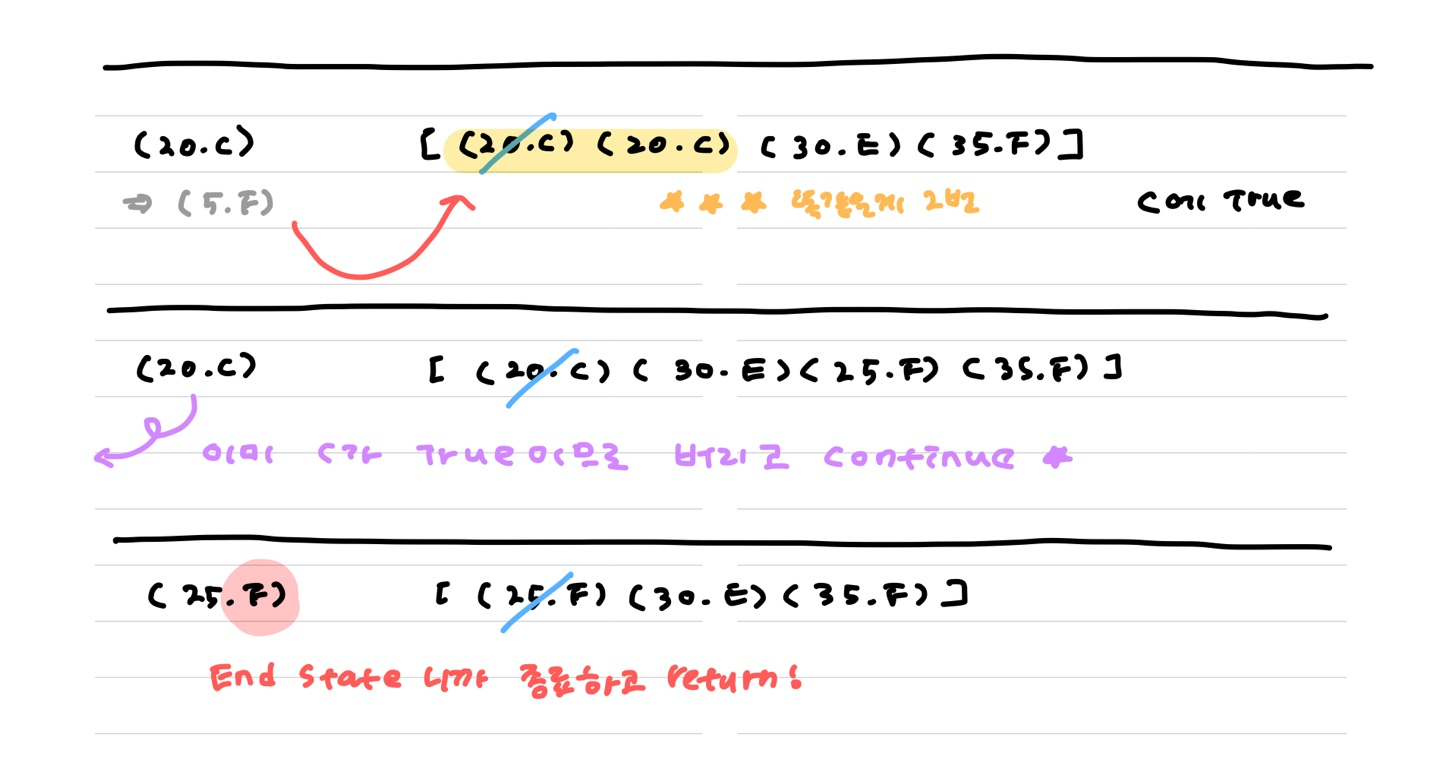 (20.C) [ (20.C) (20.C) (30.E) (35.F) ]
⇒ (5.F) ★ ★ ★ 똑같은게 2번 C에 True
(20.C) [ (20.C) (30.E) (25.F) (35.F) ]
이미 C가 True이므로 버리고 continue ★
(25.F) [ (25.F) (30.E) (35.F) ]
End State 니까 종료하고 return!